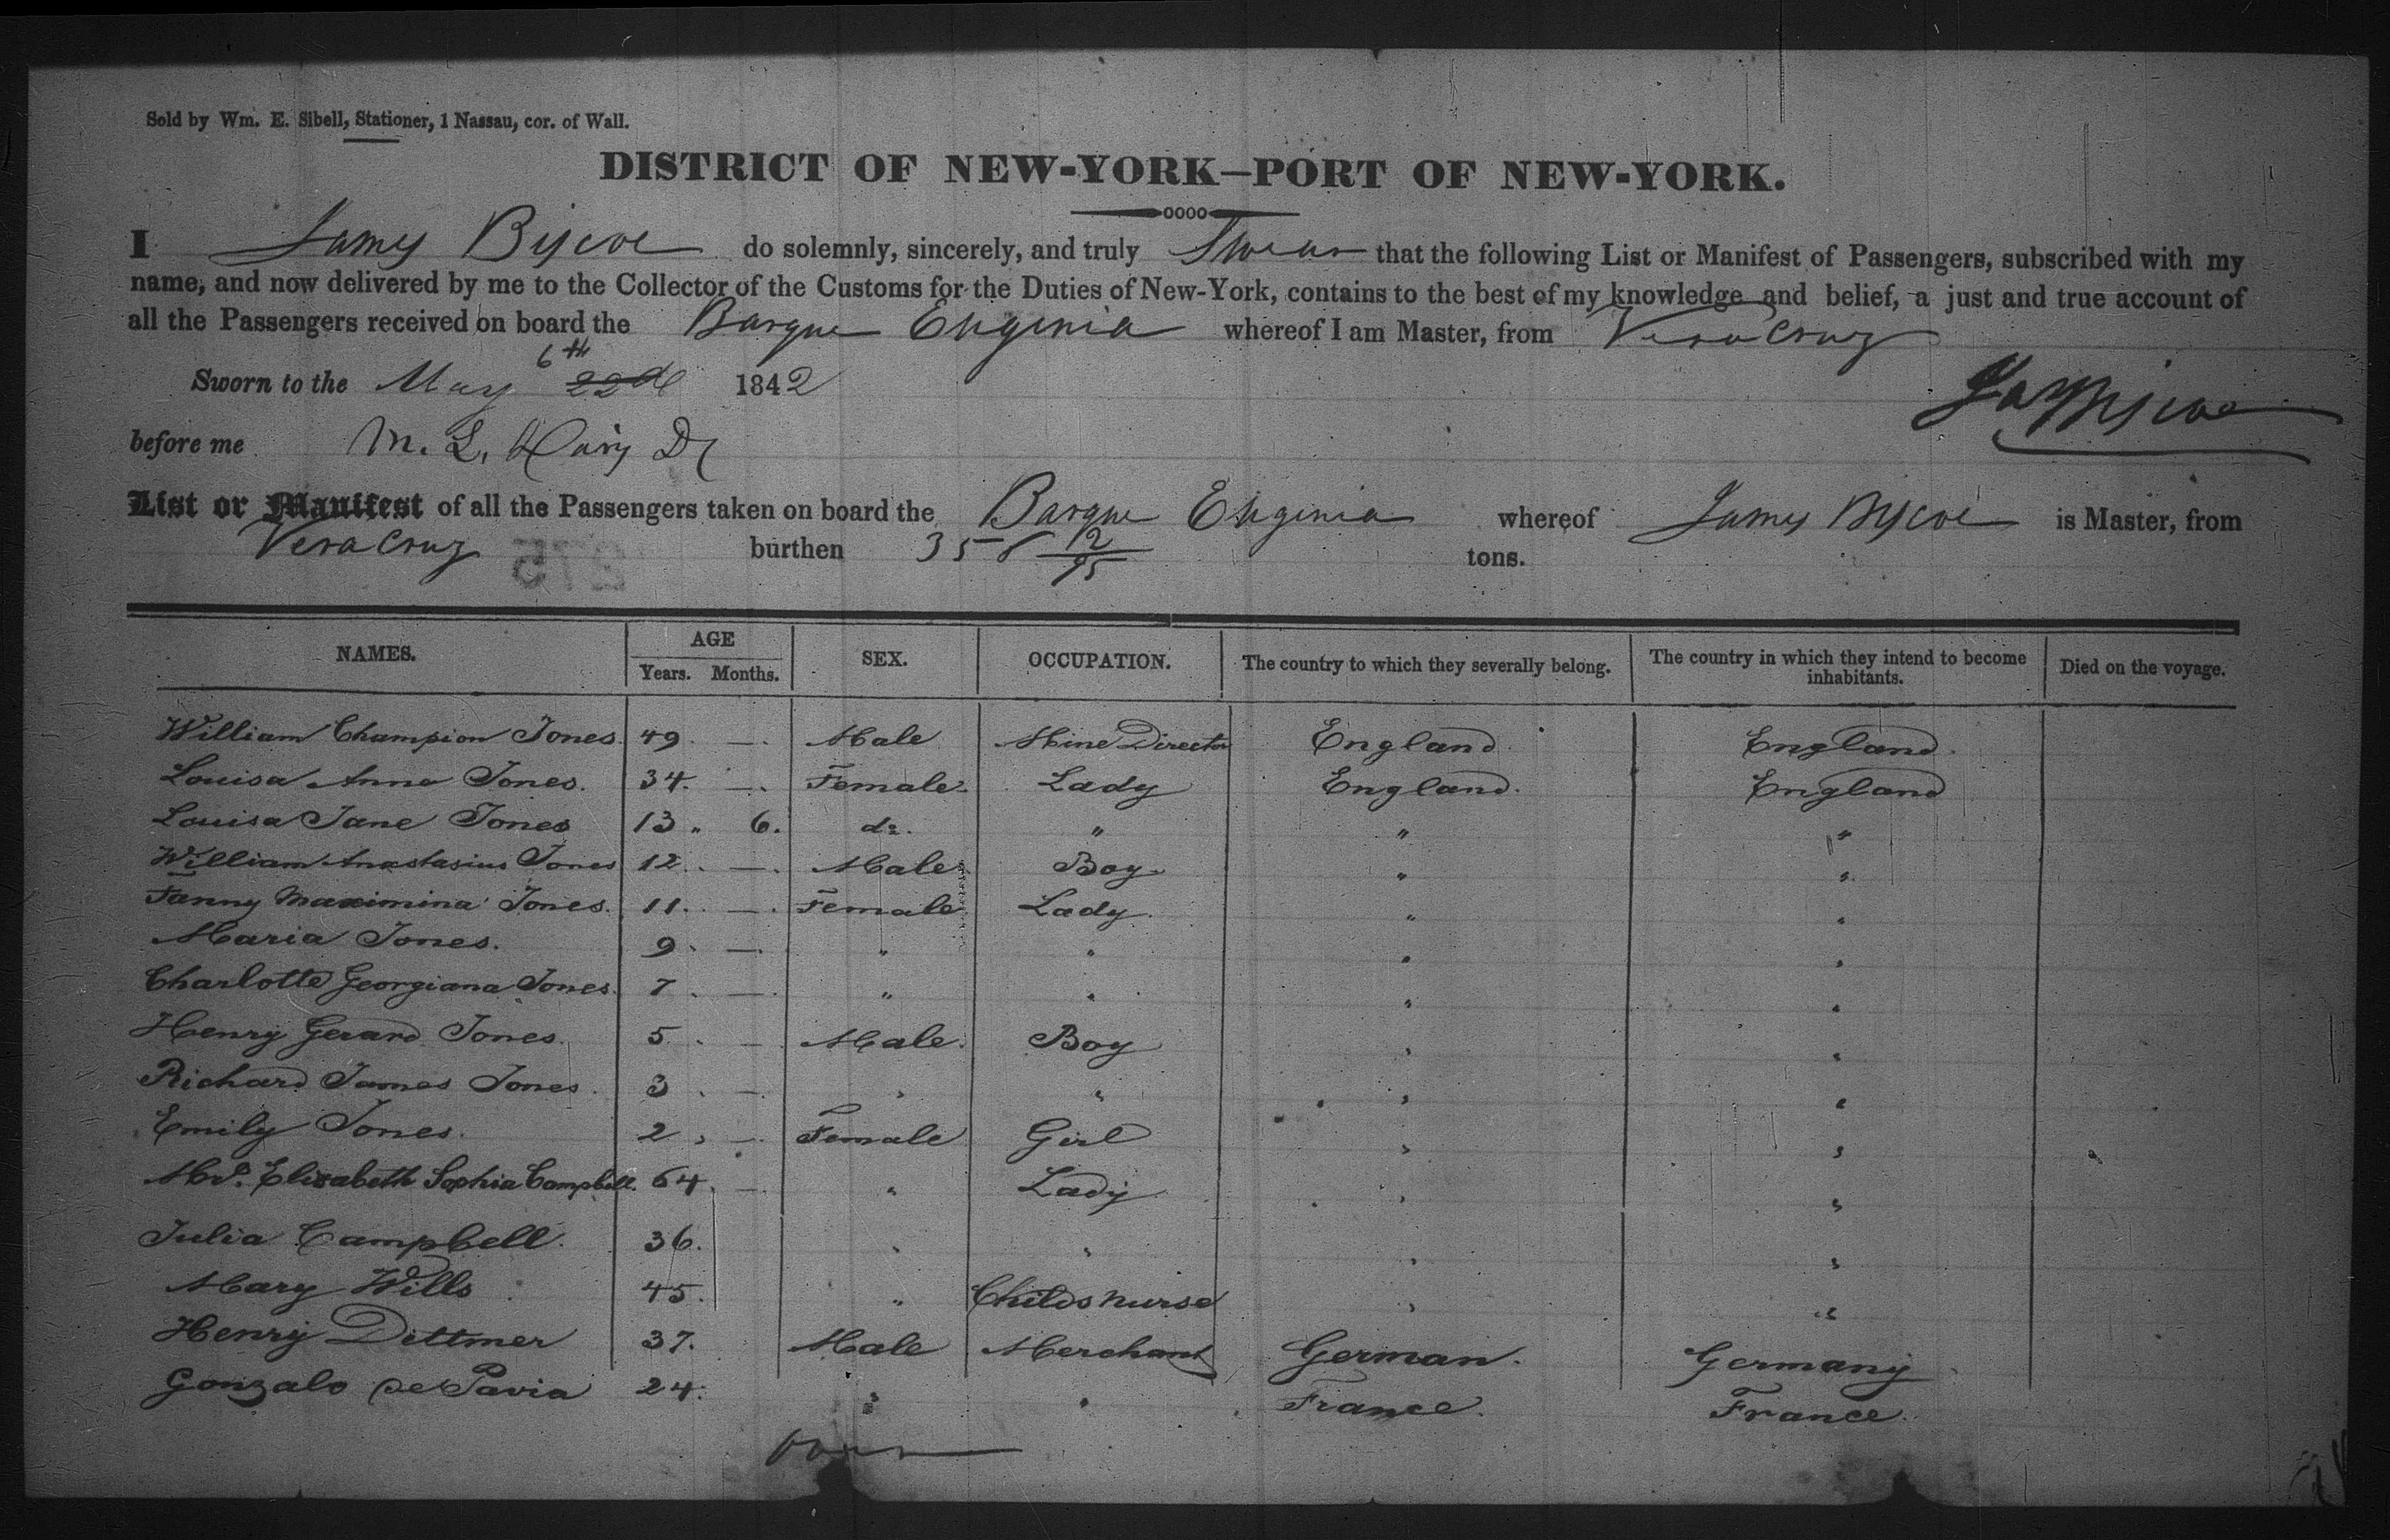 Sold by Wm. E. Sibell, Stationer, 1 Nassau, cor. of Wall.
DISTRICT OF NEW-YORK—PORT OF NEW-YORK.
I James Biscoe do solemnly, sincerely, and truly Swear that the following List or Manifest of Passengers, subscribed with my
name, and now delivered by me to the Collector of the Customs for the Duties of New-York, contains to the best of my knowledge and belief, a just and true account of
all the Passengers received on board the Barque Eugenia whereof I am Master, from Vera Cruz
6th
Sworn to the May 22d 1842
Jas Biscoe
before me M. L.
List or Manifest of all the Passengers taken on board the Barque Eugenia whereof James Biscoe is Master, from
Vera Cruz burthen 358 12/95 tons.
275
NAMES. AGE Years. Months. SEX. OCCUPATION. The country to which they severally belong. The country in which they intend to become inhabitants. Died on the voyage.
William Champion Jones. 49. —. Male Mine Director England. England.
Louisa Anna Jones. 34. —. Female. Lady England. England
Louisa Jane Jones 13 „ 6. do. " " "
William Anastasius Jones 12. —. Male. Boy " "
Fanny Maximina Jones. 11. —. Female Lady. " "
Maria Jones. 9. —. " " " "
Charlotte Georgiana Jones. 7. —. " " " "
Henry Gerard Jones. 5. — Male. Boy " "
Richard James Jones. 3. — " " " "
Emily Jones. 2, — Female Girl " "
Mrs. Elizabeth Sophia Campbell. 64. — " Lady " "
Julia Campbell. 36. " " " "
Mary Wills 45. " Childs nurse " "
Henry Dittmer 37. Male Merchant German. Germany
Gonzalo de Pavia 24. " " France. France.